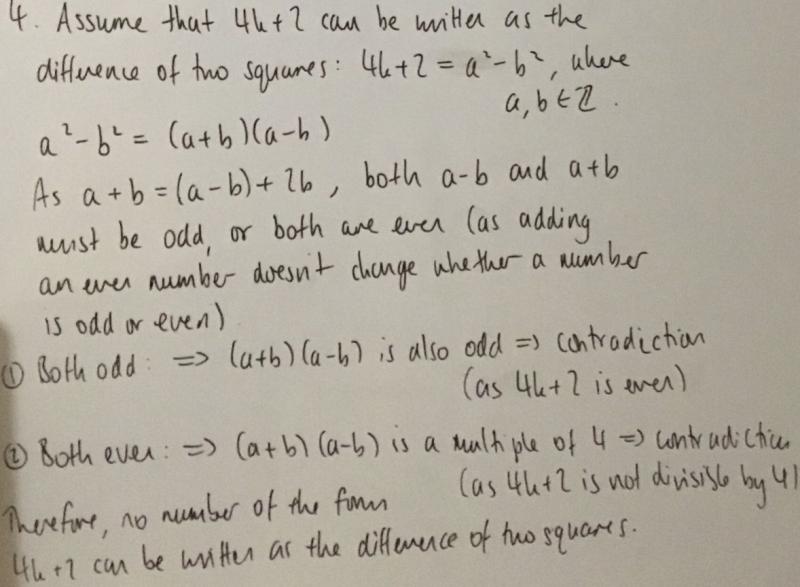 4. Assume that 4k+2 can be written as the
difference of two squares: 4k+2 = a²-b², where
a, b ∈ ℤ.
a²-b² = (a+b)(a-b)
As a+b = (a-b)+2b, both a-b and a+b
must be odd, or both are even (as adding
an even number doesn't change whether a number
is odd or even)
① Both odd: ⇒ (a+b)(a-b) is also odd ⇒ contradiction
(as 4k+2 is even)
② Both even: ⇒ (a+b)(a-b) is a multiple of 4 ⇒ contradiction
(as 4k+2 is not divisible by 4)
Therefore, no number of the form
4k+2 can be written as the difference of two squares.